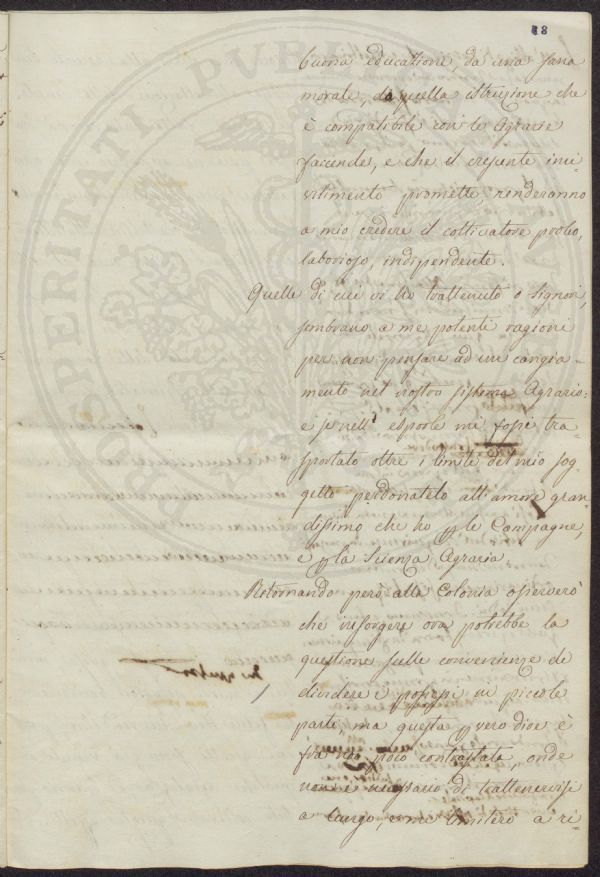 58
buona educattione, da una sana
morale, da quella istruzione che
è compatibile con le Agrarie
facende, e che il cresente inci=
vilimento promette, renderanno
a mio credere il coltivatore probo,
laborioso, indipendente.
Quelle di cui vi ho trattenuto o Signori,
sembrano a me potenti ragioni
per non pensare ad un cangia=
mento nel nostro sistema Agrario=
e se nell' esporle mi fossi tra=
sportato oltre i limiti del mio sog=
getto perdonatelo all'amore gran=
dissimo che ho p le Campagne,
e p la Scienza Agraria.
Ritornando però alla Colonia osserverò
che insorgere ora potrebbe la
questione sulle convenienze di
dividere i possessi in piccole
parti, ma questa p vero dire è
fra noi poco contrastata, onde
non è necessario di trattenervisi
a lungo, e mi limiterò a ri=
PROSPERITATI PUB